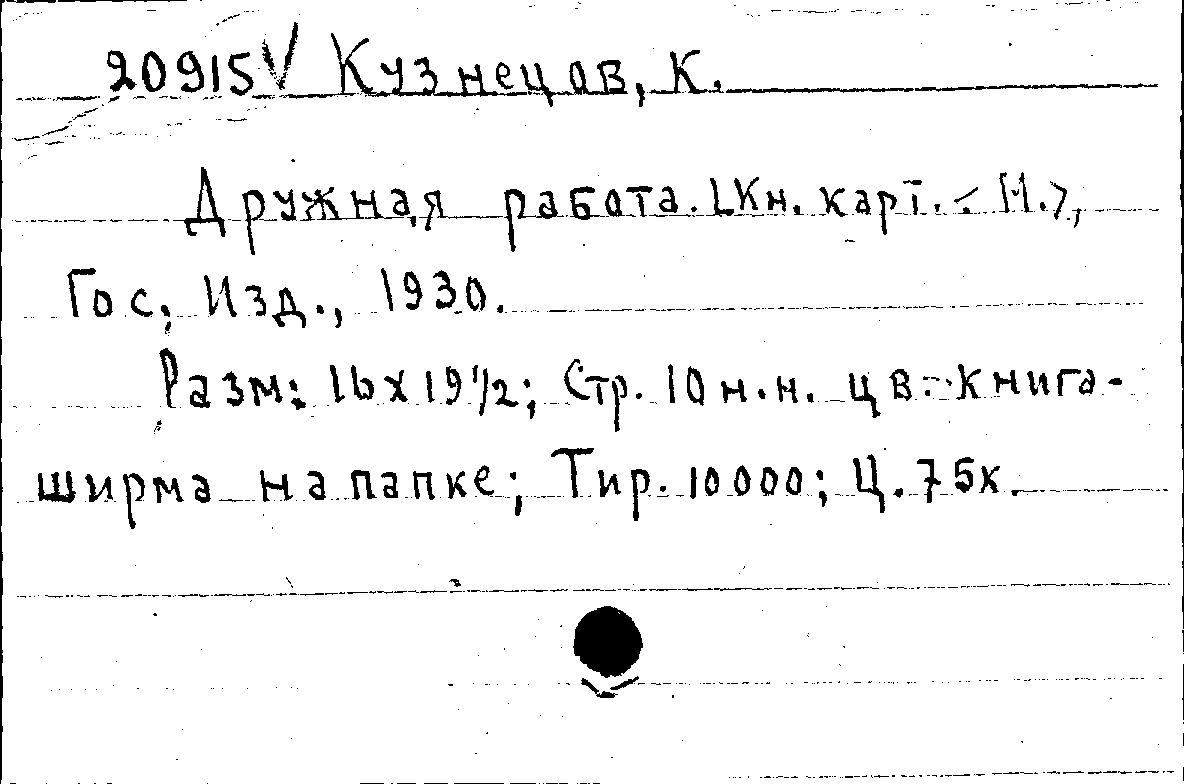 20915 V Кузнецов, К.
Дружная работа. [Кн. карт. < М.>,
Гос. Изд., 1930.
Разм: 16х19 1/2; Стр. 10 н.н. цв. книга-
ширма на папке; Тир. 10000; Ц. 75к.